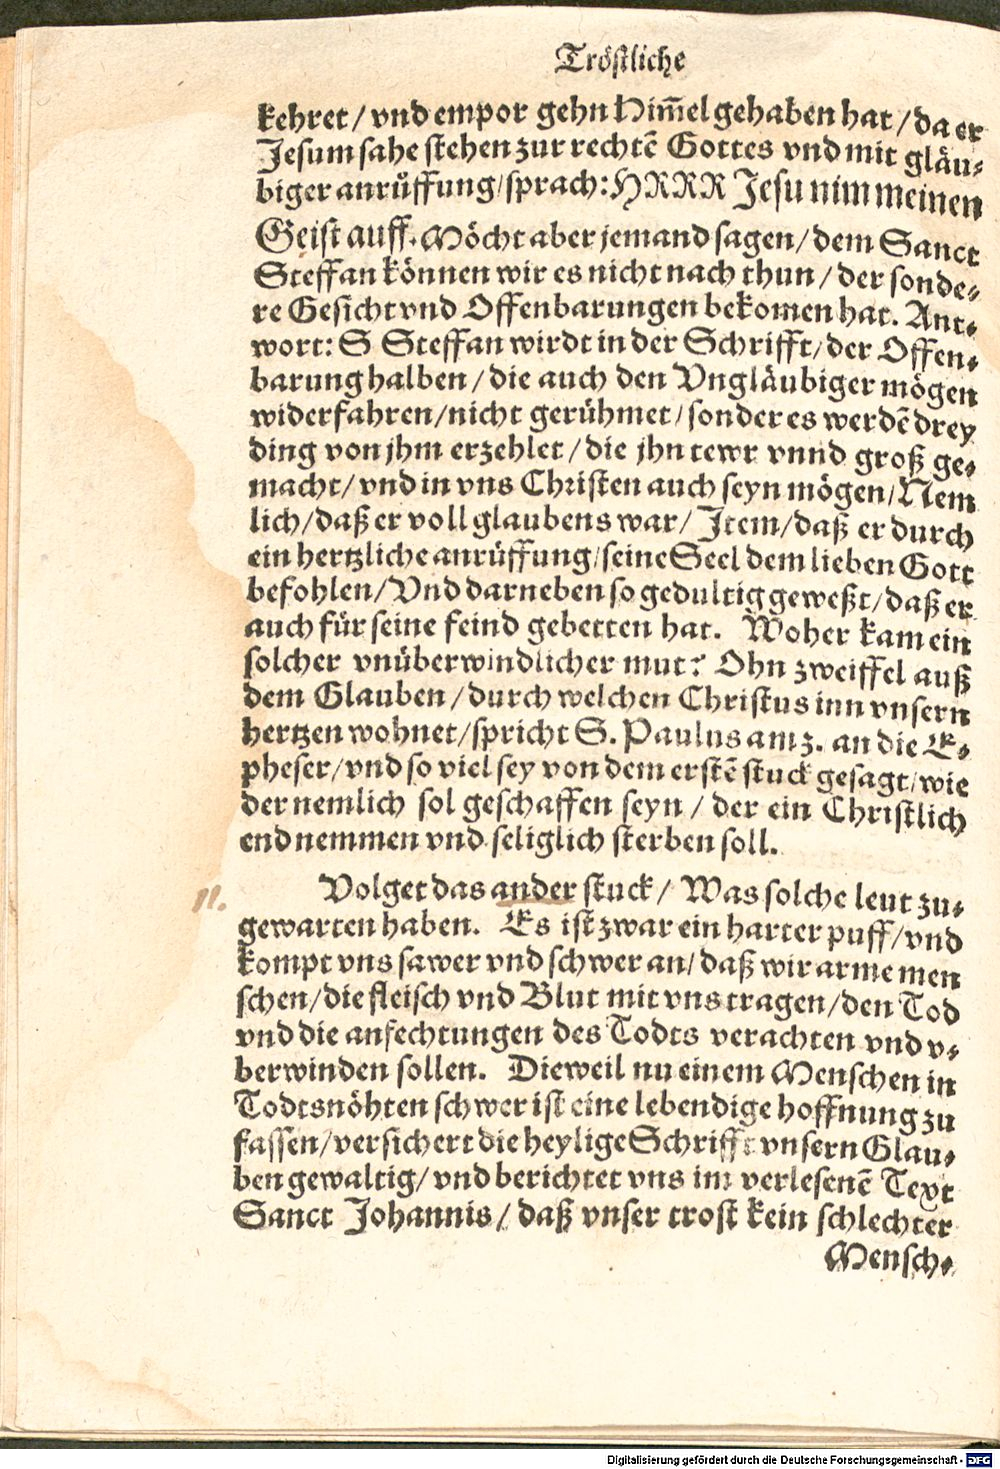 Tröstliche
kehret / vnd empor gehn Him̃el gehaben hat / da er
Jesum sahe stehen zur rechtẽ Gottes vnd mit gläu-
biger anrüffung / sprach: HRRR Jesu nim meinen
Geist auff. Möcht aber jemand sagen / dem Sanct
Steffan können wir es nicht nach thun / der sonde-
re Gesicht vnd Offenbarungen bekomen hat. Ant-
wort: S Steffan wirdt in der Schrifft / der Offen-
barung halben / die auch den Vngläubiger mögen
widerfahren / nicht gerühmet / sonder es werdẽ drey
ding von jhm erzehlet / die jhn tewr vnnd groß ge-
macht / vnd in vns Christen auch seyn mögen / Nem
lich / daß er voll glaubens war / Jtem / daß er durch
ein hertzliche anrüffung / seine Seel dem lieben Gott
befohlen / Vnd darneben so gedultig geweßt / daß er
auch für seine feind gebetten hat. Woher kam ein
solcher vnüberwindlicher mut? Ohn zweiffel auß
dem Glauben / durch welchen Christus inn vnsern
hertzen wohnet / spricht S. Paulus am 3. an die E-
pheser / vnd so viel sey von dem erstẽ stuck gesagt / wie
der nemlich sol geschaffen seyn / der ein Christlich
end nemmen vnd seliglich sterben soll.
II. Volget das ander stuck / Was solche leut zu-
gewarten haben. Es ist zwar ein harter puff / vnd
kompt vns sawer vnd schwer an / daß wir arme men
schen / die fleisch vnd Blut mit vns tragen / den Tod
vnd die anfechtungen des Todts verachten vnd v-
berwinden sollen. Dieweil nu einem Menschen in
Todtsnöhten schwer ist eine lebendige hoffnung zu
fassen / versichert die heylige Schrifft vnsern Glau-
ben gewaltig / vnd berichtet vns im verlesenẽ Text
Sanct Johannis / daß vnser trost kein schlechter
Mensch-
Digitalisierung gefördert durch die Deutsche Forschungsgemeinschaft - DFG